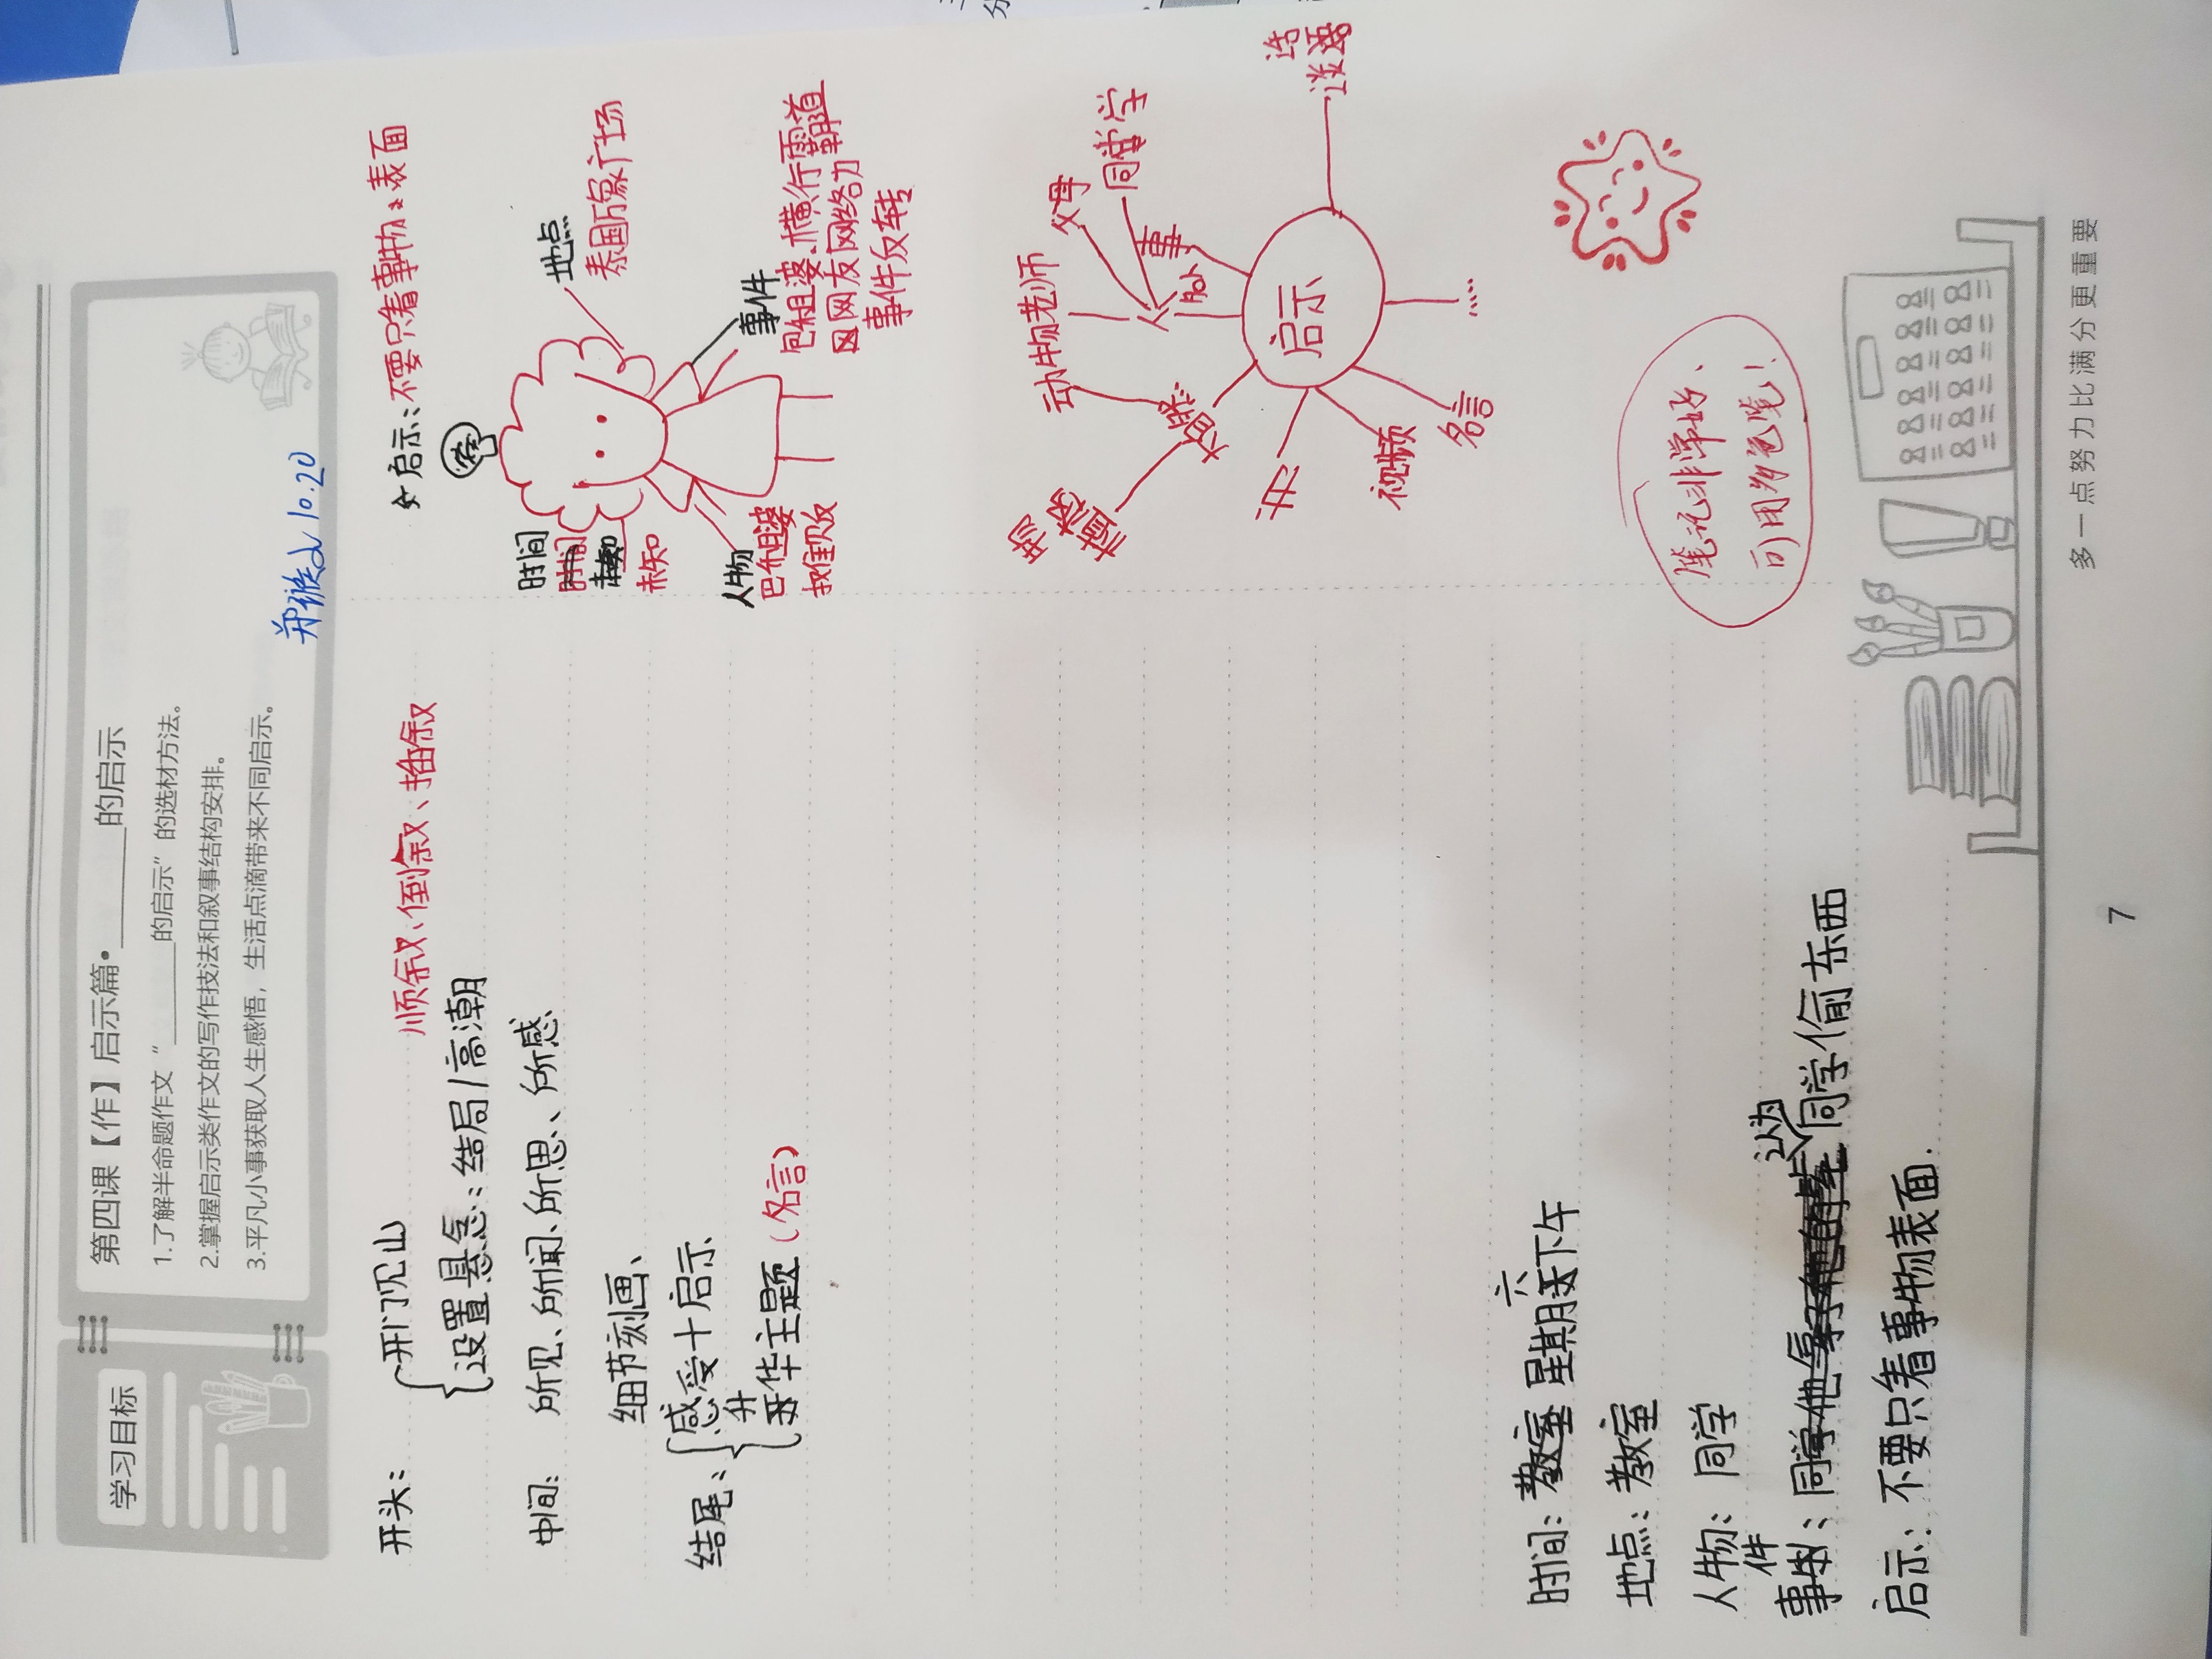 学习目标
第四课【作】启示篇•______的启示
1.了解半命题作文“______的启示”的选材方法。
2.掌握启示类作文的写作技法和叙事结构安排。
3.平凡小事获取人生感悟，生活点滴带来不同启示。
10.20
顺叙、倒叙、插叙
开头：
开门见山
设置悬念：结局/高潮
中间：
所见、所闻、所思、所感
细节刻画、
结尾：
感受十启示
升华主题（名言）
时间：星期六下午
地点：教室
人物：同学
事件：同学认为同学偷东西
启示：不要只看事物表面.
☆启示：不要只看事物表面
时间
未知
地点
泰国万象广场
事件
包租婆横行霸道
因网友网络力
事件反转
人物
包租婆
摊贩
启示
事
人
父母
同学
老师
大自然
动物
植物
视频
名言
......
笔记非常好、
可用多色笔！
多一点努力比满分更重要
7